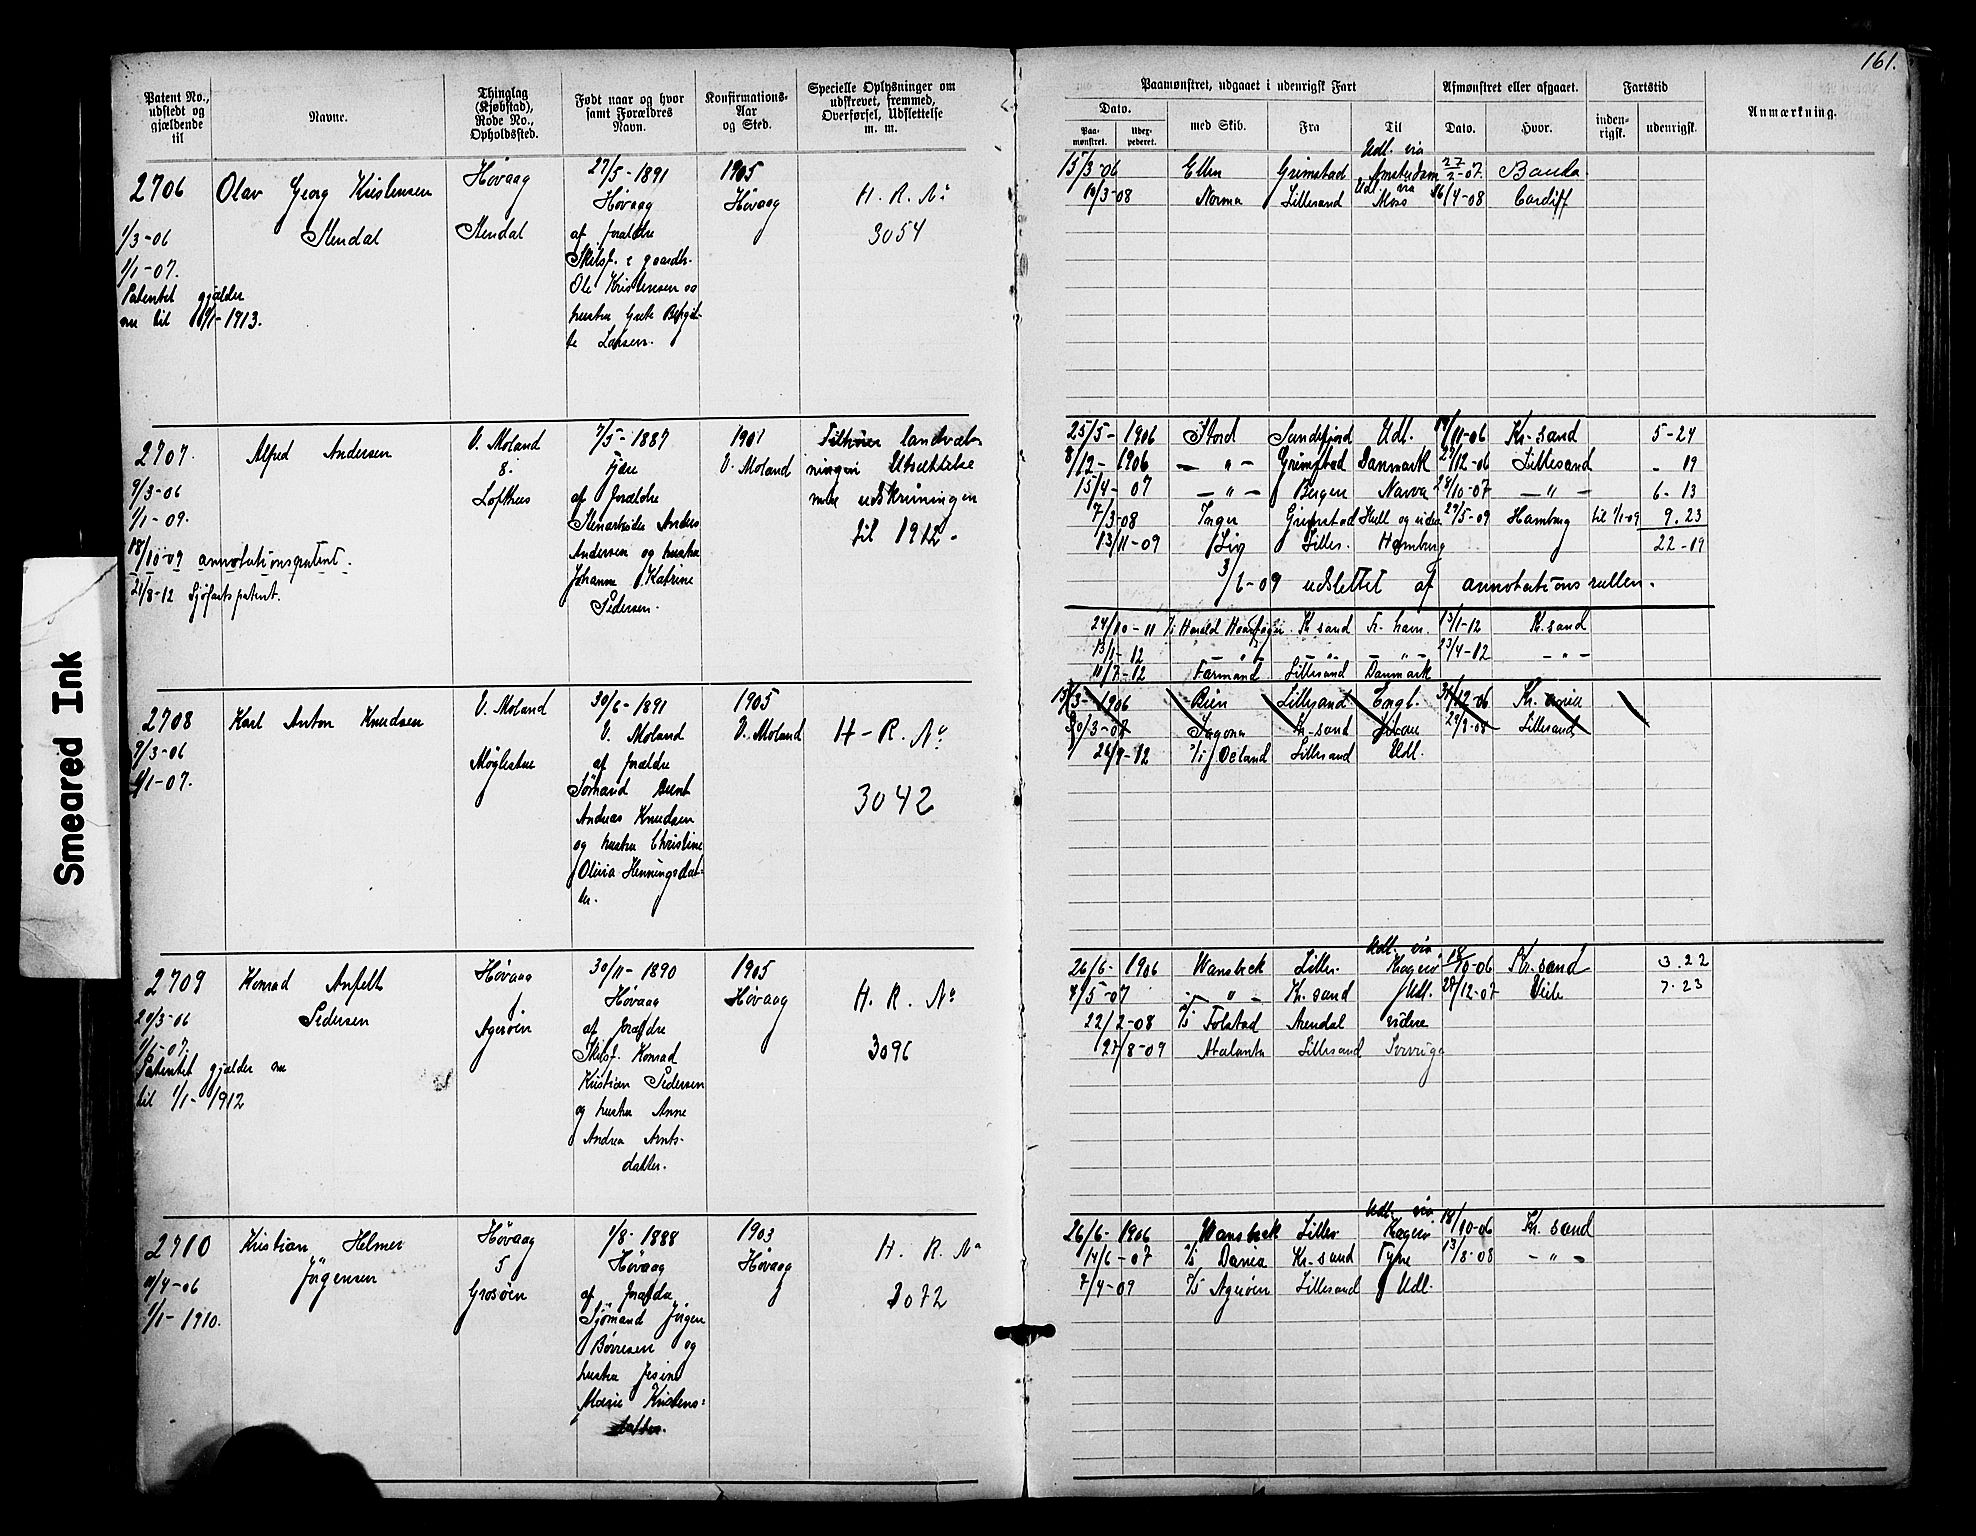 161.
Patent No., udstedt og gjældende til
Navne.
Thinglag (Kjøbstad), Rode No., Opholdssted.
Født naar og hvor samt Forældres Navn.
Konfirmations-Aar og Sted.
Specielle Oplysninger om udskrevet, fremmed, Overførsel, Udslettelse m. m.
Paamønstret, udgaaet i udenrigsk Fart
Dato.
Paa-mønstret.
med Skib.
Fra
Til
Afmønstret eller afgaaet.
Dato.
Hvor.
Fartstid
inden-rigsk.
udenrigsk.
Anmærkning.
2706
Olav Georg Kristensen
Stendal
1/3-06
1/1-07.
Patentet gjælder
nu til 1/1-1913.
Høvaag
Stendal
27/5-1891
Høvaag
af forældre
Skibsf. & gaardb.
Ole Kristensen og
hustru Grete Birgit-
te Larsen.
1905
Høvaag
H. R. No
3054
Udl. via
15/3-06 Ellen Grimstad Amsterdam 27/2-07.
Udl via
10/3-08 Norma Lillesand Moss 26/4-08 Cardiff
2707.
Alfred Andersen
9/3-06
1/1-09.
18/10-09 annotationspatent.
21/8-12 Sjøfartspatent.
V. Moland
8.
Lofthus
7/5-1887
Fjære
af forældre
Stenarbeider Anders
Andersen og hustru
Johanne Katrine
Pedersen.
1901
V. Moland
Tilhører landværb-
ningen Utsættelse
med udskrivningen
til 1912.
25/5-1906 Stord Sandefjord Udl. 14/11-06 Kr-sand 5-24
8/12-1906 - " - Grimstad Danmark 27/12-06 Lillesand - 19
15/4-07 - " - Bergen Narva 28/10-07 - " - 6-13
7/3-08 Inger Grimstad Hull og videre 29/5-09 Hamburg til 1/1-09 9.23
13/11-09 Liv Lilles. Hamburg 22-19
3/6-09 udslettet af annotationsrullen.
24/10-11 S/S Harald Haarfager Kr sand Fr. havn. 13/1-12 Kr. sand
13/1-12 - " - - " - - " - 23/4-12 - " -
11/7-12 Farmand Lillesand Danmark
2708
Karl Anton Knudsen
9/3-06
1/1-07.
V. Moland
Møglestue
30/6-1891
V. Moland
af forældre
Sømand Bernt
Andreas Knudsen
og hustru Christine
Olivia Henningsdat-
ter.
1905
V. Moland
H-R. No
3042
15/3-1906 Bien Lillesand Engl. 31/12-06
30/3-07 Kr-sand 29/8-08 Lillesand
26/9-12 S/S Oeland Lillesand Udl.
2709
Konrad Anfelt
Pedersen
20/3-06
Patentet gjælder nu
til 1/1-1912
Høvaag
Agerøen
30/11-1890
Høvaag
af forældre
Skibsf. Konrad
Kristian Pedersen
og hustru Anne
Andrea Arnts-
datter.
1905
Høvaag
H. R. No
3096
Udl. via
26/6-1906 Wansbeck Lilles. Kragerø 18/10-06 Kr. sand 3.22
4/5-07 - " - Kr. sand Udl. 28/12-07 Veile 7.23
22/2-08 S/S Folstad Arendal videre
27/8-09 Atalanta Lillesand
2710
Kristian Helmer
Jørgensen
10/4-06
1/1-1910.
Høvaag
5
Grosøen
1/8-1888
Høvaag
af forældre
Sjømand Jørgen
Børresen og
hustru Jesine
Marie Kristens-
datter.
1903
Høvaag
H. R. No
3072
Udl. via
26/6-1906 Wansbeck Lilles. Kragerø 18/10-06 Kr. sand
14/6-07 S/S Dania Kr-sand Tyne 13/8-08 - " -
7/4-09 S/S Agerøen Lillesand Udl.
Smeared Ink